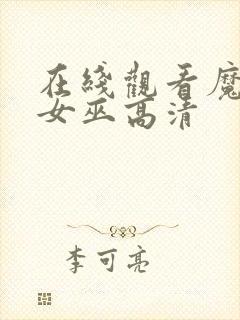 在綫觀看魔
女巫高清
李可亮